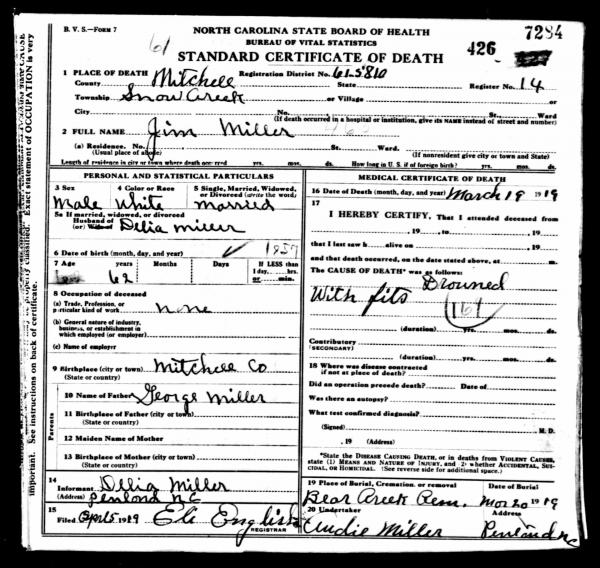 B. V. S.—FORM 7
NORTH CAROLINA STATE BOARD OF HEALTH
BUREAU OF VITAL STATISTICS
STANDARD CERTIFICATE OF DEATH
61
426
7284
1 PLACE OF DEATH
Registration District No. 61-5810
Register No. 14
County Mitchell State
Township Snow Creek or Village or
City No. St., Ward
(If death occurred in a hospital or institution, give its NAME instead of street and number)
2 FULL NAME Jim Miller
(a) Residence. No. St. Ward.
(Usual place of abode) (If nonresident give city or town and State)
Length of residence in city or town where death occurred yrs. mos. ds. How long in U. S. if of foreign birth? yrs. mos. ds.
PERSONAL AND STATISTICAL PARTICULARS
3 Sex 4 Color or Race 5 Single, Married, Widowed, or Divorced (write the word)
Male White Married
5a If married, widowed, or divorced
Husband of
(or) Wife of Delia Miller
6 Date of birth (month, day, and year) 1857
7 Age Years Months Days If LESS than
1 day, hrs.
or min.
62
8 Occupation of deceased
(a) Trade, Profession, or
particular kind of work none
(b) General nature of industry,
business, or establishment in
which employed (or employer)
(c) Name of employer
9 Birthplace (city or town) Mitchell Co
(State or country)
Parents
10 Name of Father George Miller
11 Birthplace of Father (city or town)
(State or country)
12 Maiden Name of Mother
13 Birthplace of Mother (city or town)
(State or country)
14
Informant Dellia Miller
(Address) Penland NC
15
Filed Apr 15 1919 Eli English
REGISTRAR
MEDICAL CERTIFICATE OF DEATH
16 Date of Death (month, day, and year) March 19 1919
17
I HEREBY CERTIFY, That I attended deceased from
, 19 , to , 19
that I last saw h alive on , 19
and that death occurred, on the date stated above, at m.
The CAUSE OF DEATH* was as follows:
Drouned
With fits
(duration) yrs. mos. ds.
Contributory
(SECONDARY)
(duration) yrs. mos. ds.
18 Where was disease contracted
if not at place of death?
Did an operation precede death? Date of
Was there an autopsy?
What test confirmed diagnosis?
(Signed) M. D.
, 19 (Address)
*State the DISEASE CAUSING DEATH, or in deaths from VIOLENT CAUSES,
state (1) MEANS AND NATURE OF INJURY, and 2) whether ACCIDENTAL, SUI-
CIDAL, or HOMICIDAL. (See reverse side for additional space.)
19 Place of Burial, Cremation, or removal Date of Burial
Bear Creek Cem. Mar 20 1919
20 Undertaker Address
Andie Miller Penland NC
Exact statement of OCCUPATION is very
important. See instructions on back of certificate.